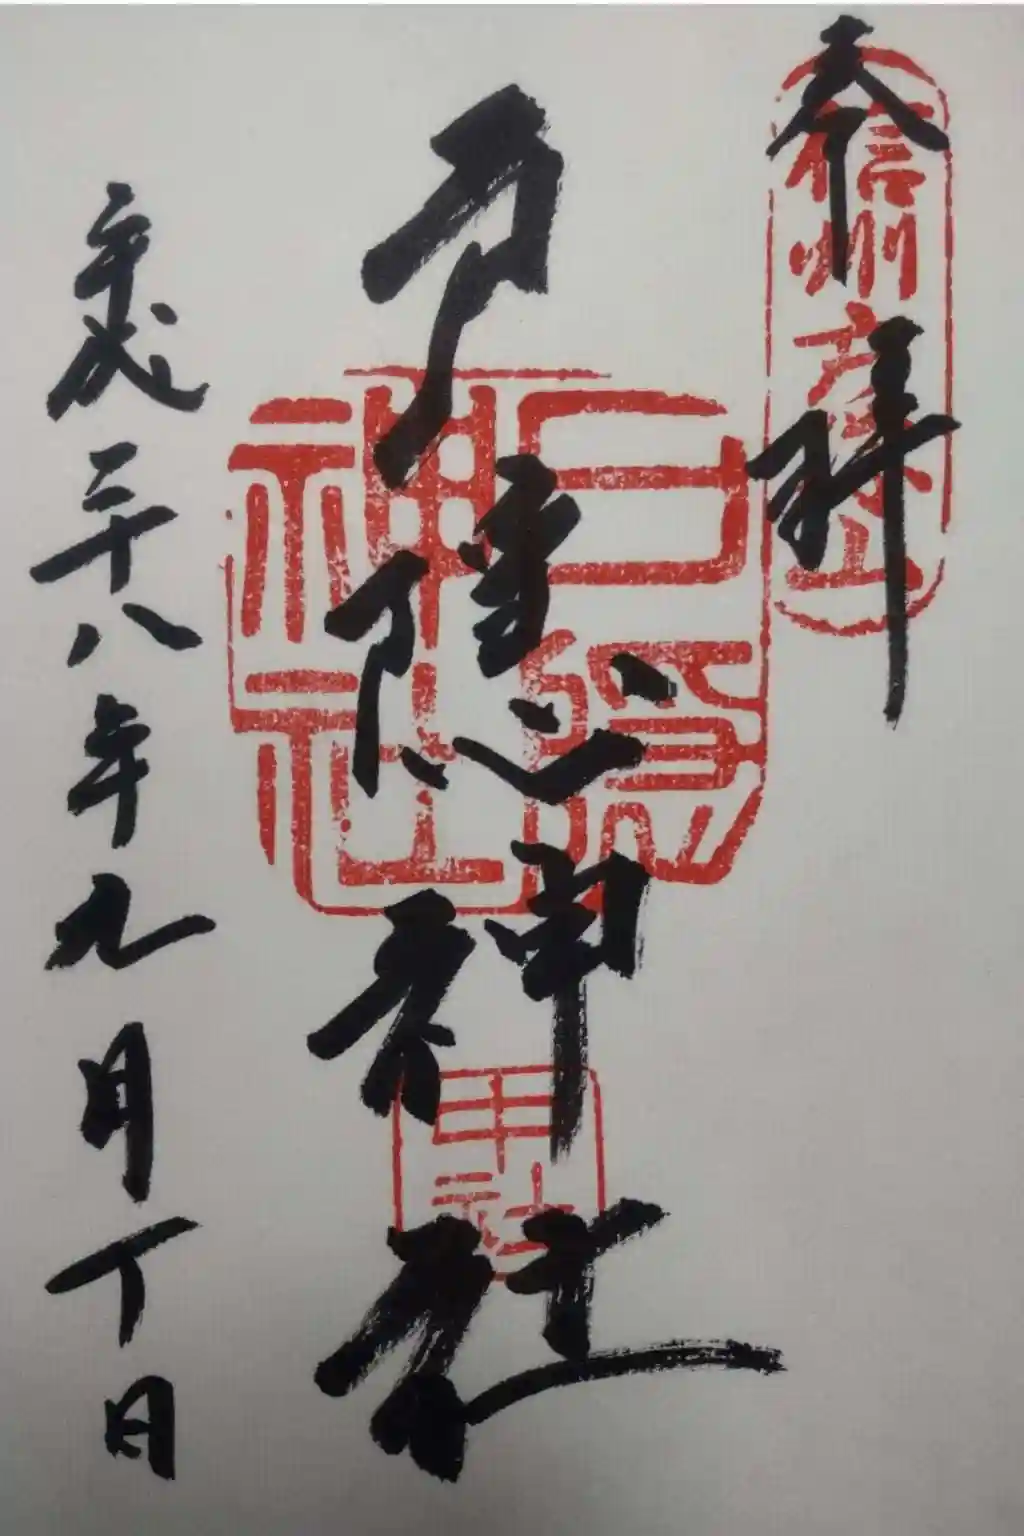 奉拝
信州戸隠山
戸隠神社
戸隠神社
中社
平成二十八年九月丁日